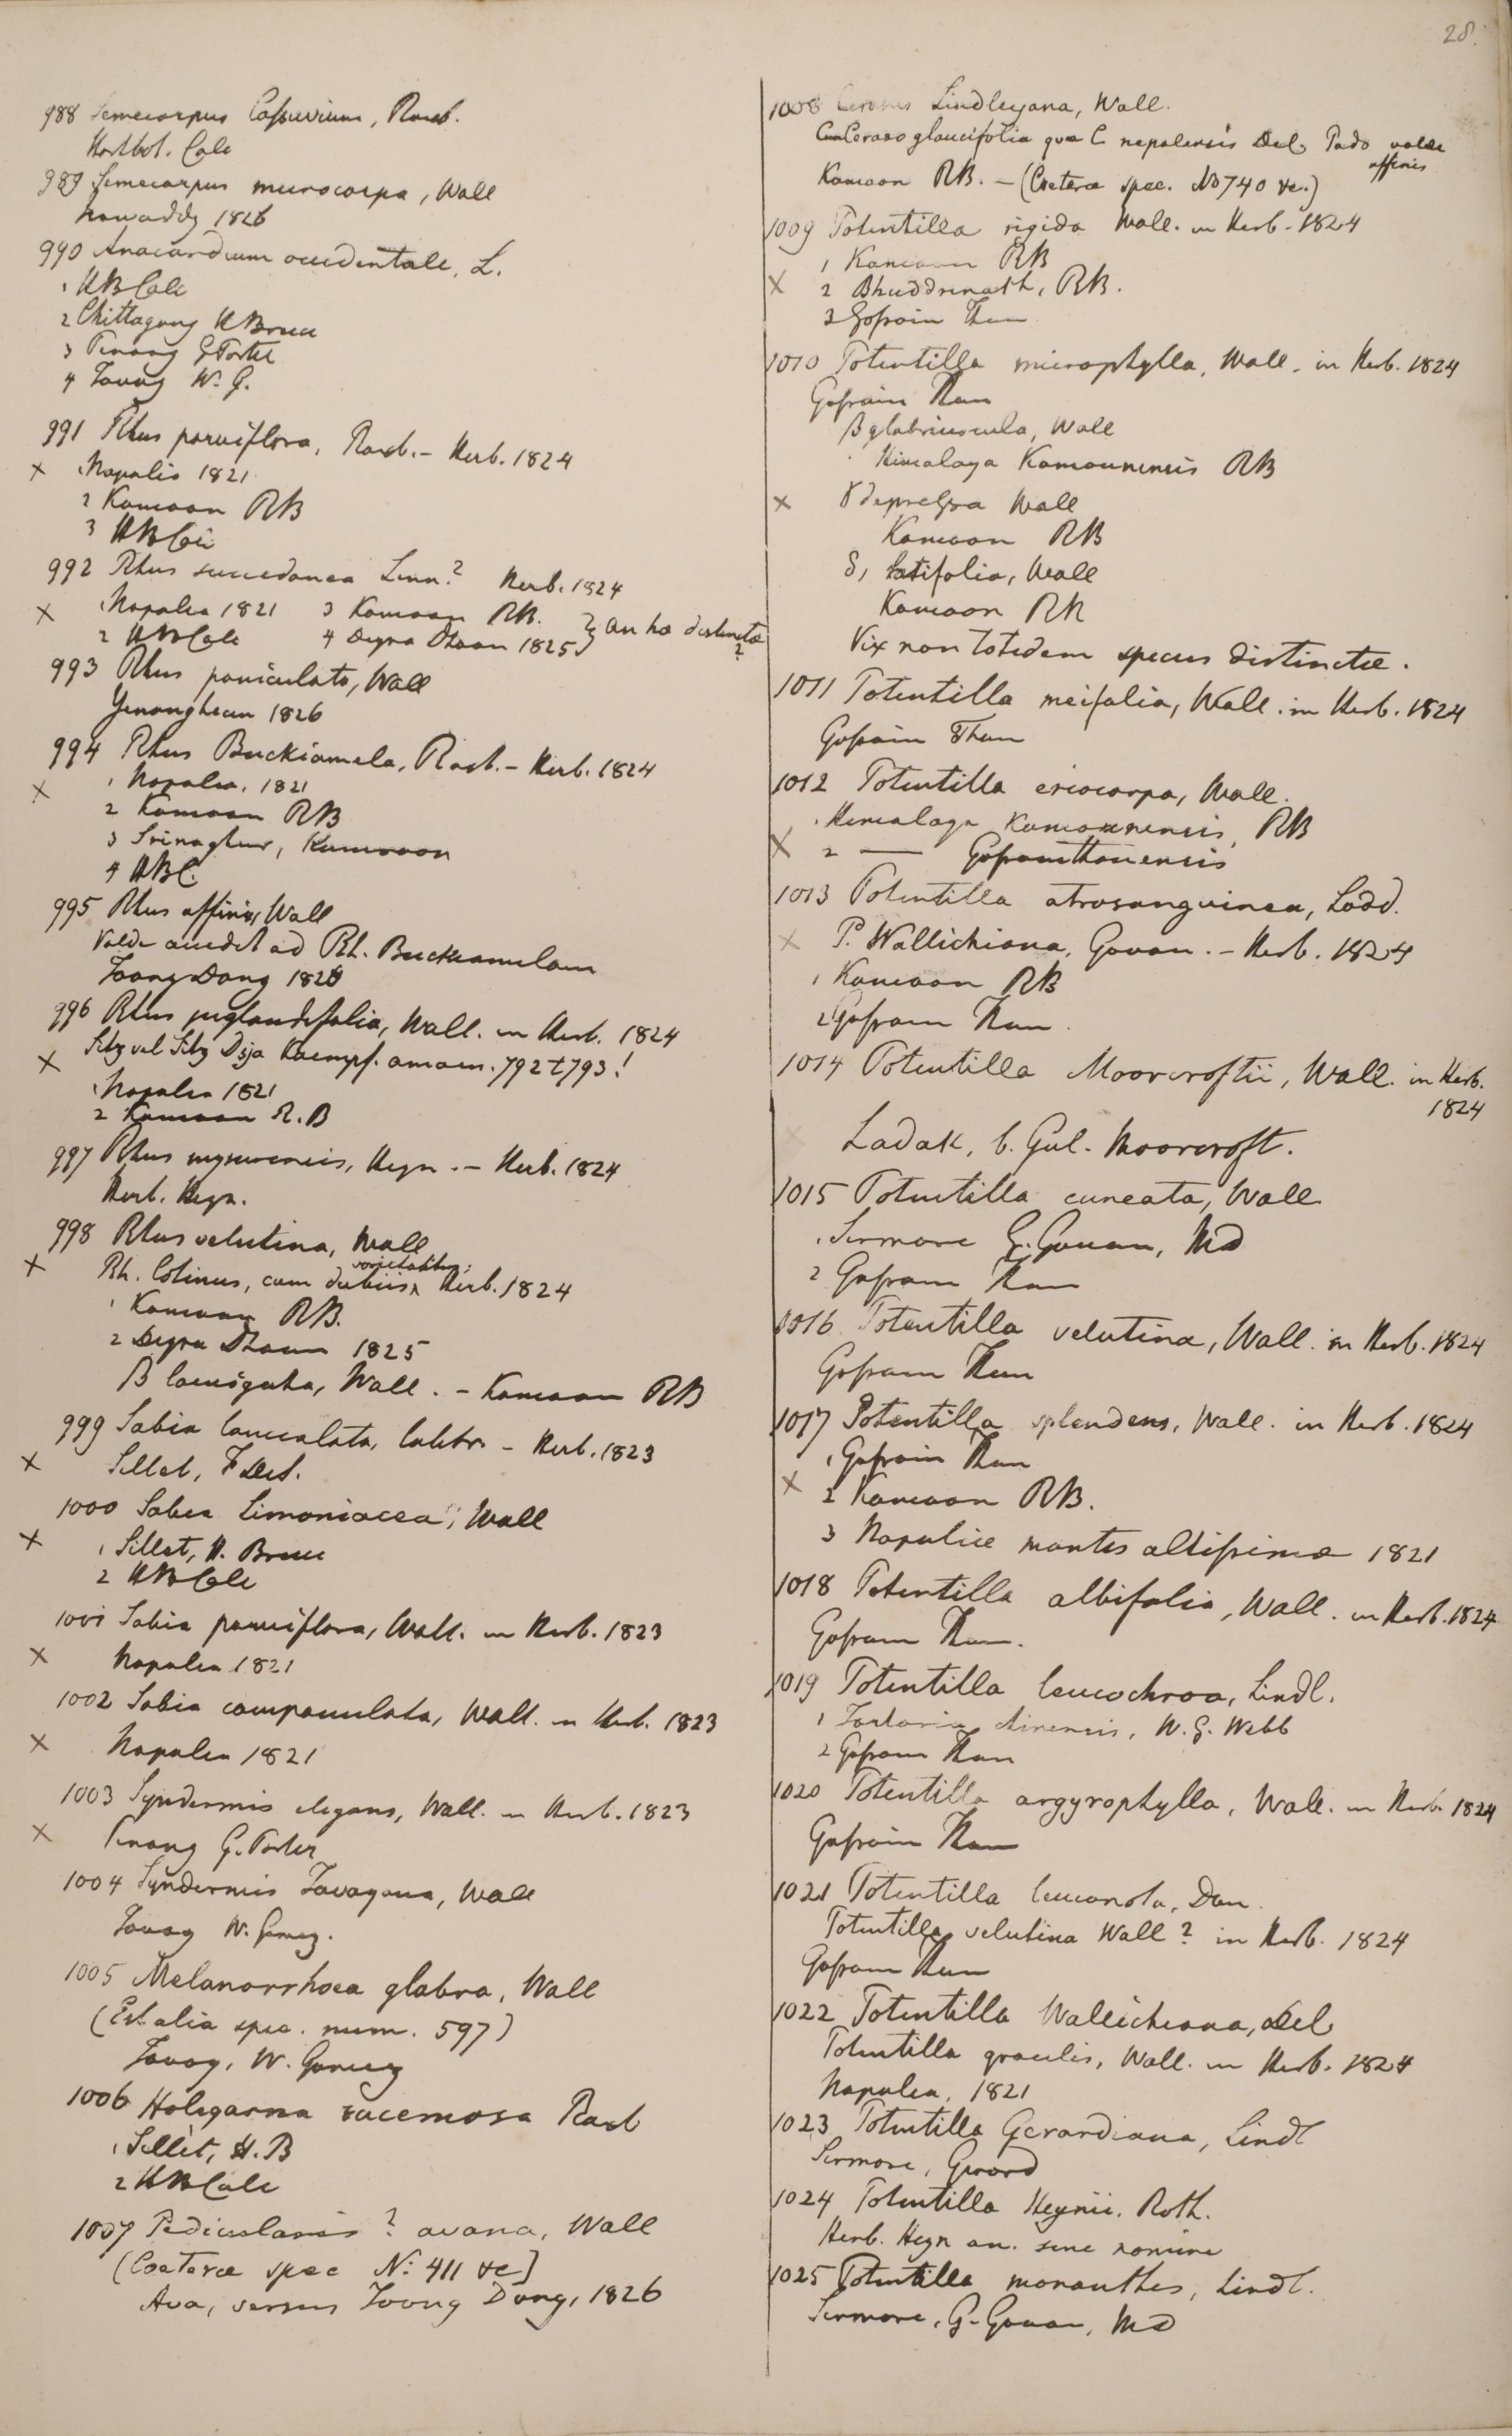 28.
988 Semecarpus Cassuvium, Roxb.
Hortbot. Calc
989 Semecarpus microcarpa, Wall
Irawaddy 1826
990 Anacardium occidentale, L.
1 HBCalc
2 Chittagong HBruce
3 Penang GPorter
4 Tavoy W. G.
991 Rhus parviflora, Roxb. – Herb. 1824
x 1 Napalia 1821
2 Kamaon RB
3 HBCalc
992 Rhus succedanea Linn? Herb. 1824
x 1 Napalia 1821 3 Kamaon RB. } an hæ distinctæ
2 HBCalc 4 Deyra Dhoon 1825 } ?
993 Rhus paniculata, Wall
Yenanghean 1826
994 Rhus Buckiamela, Roxb. – Herb. 1824
x 1 Napalia, 1821
2 Kamaon RB
3 Srinaghur, Kamroon
4 HBC.
995 Rhus affinis, Wall
Valde accedit ad Rh. Buckiamelam
Toong Dong 1826
996 Rhus juglandifolia, Wall. in Herb. 1824
x Sitz vel Sitz Dsja Kaempf. amoen. 792 + 793!
1 Napalia 1821
2 Kamaon R.B
997 Rhus mysurensis, Heyn. – Herb. 1824
Herb. Heyn.
998 Rhus velutina, Wall
x Rh. Cotinus, cum dubiis varietatibus; Herb. 1824
1 Kamaon RB.
2 Deyra Dhoon 1825
β laevigata, Wall. – Kamaon RB
999 Sabia lanceolata, Colebr. – Herb. 1823
x Sillet, F. de S.
1000 Sabia limoniacea, Wall
x 1 Sillet, H. Bruce
2 HBCalc
1001 Sabia parviflora, Wall. in Herb. 1823
x Napalia 1821
1002 Sabia campanulata, Wall. in Herb. 1823
x Napalia 1821
1003 Syndesmis elegans, Wall. in Herb. 1823
x Penang G. Porter
1004 Syndesmis Tavoyana, Wall
Tavoy W. Gomez.
1005 Melanorrhoea glabra, Wall
(Est alia spec. num. 597)
Tavoy, W. Gomez
1006 Holigarna racemosa Roxb
1 Sillet, H.B
2 HBCalc
1007 Pedicularis ? avana, Wall
(Coeteræ spec No: 411 &c)
Ava, versus Toong Dong, 1826
1008 Cerasus Lindleyana, Wall.
Cum Ceraso glaucifolia quæ C nepalensis Del. Pado valde affinis
Kamaon RB. – (Coeteræ spec. No 740 &c.)
1009 Potentilla rigida Wall. in Herb. 1824
1 Kamaon RB
x 2 Bhuddrinath, RB.
3 Gossain Than
1010 Potentilla microphylla, Wall. in Herb. 1824
Gossain Than
β glabriuscula, Wall
Himalaya Kamaunensis RB
x γ depressa Wall
Kamaon RB
δ, latifolia, Wall
Kamaon RB
Vix non totidem species distinctæ.
1011 Potentilla meifolia, Wall. in Herb. 1824
Gossain Than
1012 Potentilla eriocarpa, Wall.
1 Himalaya Kamaonensis, RB
x 2 —— Gossainthanensis
1013 Potentilla atrosanguinea, Lodd.
x P. Wallichiana, Govan. – Herb. 1824
1 Kamaon RB
2 Gossain Than.
1014 Potentilla Moorcroftii, Wall. in Herb. 1824
x Ladak, b. Gul. Moorcroft.
1015 Potentilla cuneata, Wall
1 Sirmore G. Govan, MD
2 Gossain Than
1016 Potentilla velutina, Wall. in Herb. 1824
Gossain Than
1017 Potentilla splendens, Wall. in Herb. 1824
1 Gossain Than
x 2 Kamaon RB.
3 Napaliæ montes altissimæ 1821
1018 Potentilla albifolia, Wall. in Herb. 1824
Gossain Than.
1019 Potentilla leucochroa, Lindl.
1 Tartaria chinensis, W. S. Webb
2 Gossain Than
1020 Potentilla argyrophylla, Wall. in Herb. 1824
Gossain Than
1021 Potentilla leuconota, Don.
Potentilla velutina Wall? in Herb. 1824
Gossain Than
1022 Potentilla Wallichiana, Del
Potentilla gracilis, Wall. in Herb. 1824
Napalia, 1821
1023 Potentilla Gerardiana, Lindl
Sirmore, Gerard
1024 Potentilla Heynii. Roth.
Herb. Heyn an. sine nomine
1025 Potentilla monanthes, Lindl.
Sirmore, G. Govan, MD